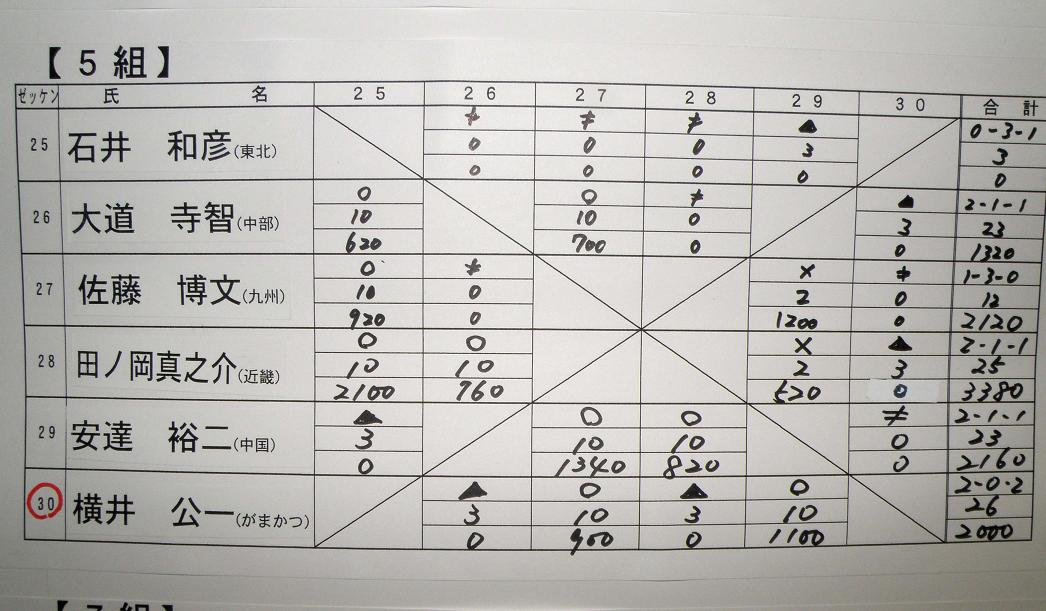 【５組】
ゼッケン 氏 名 25 26 27 28 29 30 合 計
≠ ≠ ≠ ▲ 0-3-1
25 石井 和彦(東北) 0 0 0 3 3
0 0 0 0 0
○ ○ ≠ ▲ 2-1-1
26 大道 寺智(中部) 10 10 0 3 23
620 700 0 0 1320
○ ≠ × ≠ 1-3-0
27 佐藤 博文(九州) 10 0 2 0 12
920 0 1200 0 2120
○ ○ × ▲ 2-1-1
28 田ノ岡真之介(近畿) 10 10 2 3 25
2100 760 520 0 3380
▲ ○ ○ ≠ 2-1-1
29 安達 裕二(中国) 3 10 10 0 23
0 1340 820 0 2160
▲ ○ ▲ ○ 2-0-2
30 横井 公一(がまかつ) 3 10 3 10 26
0 900 0 1100 2000